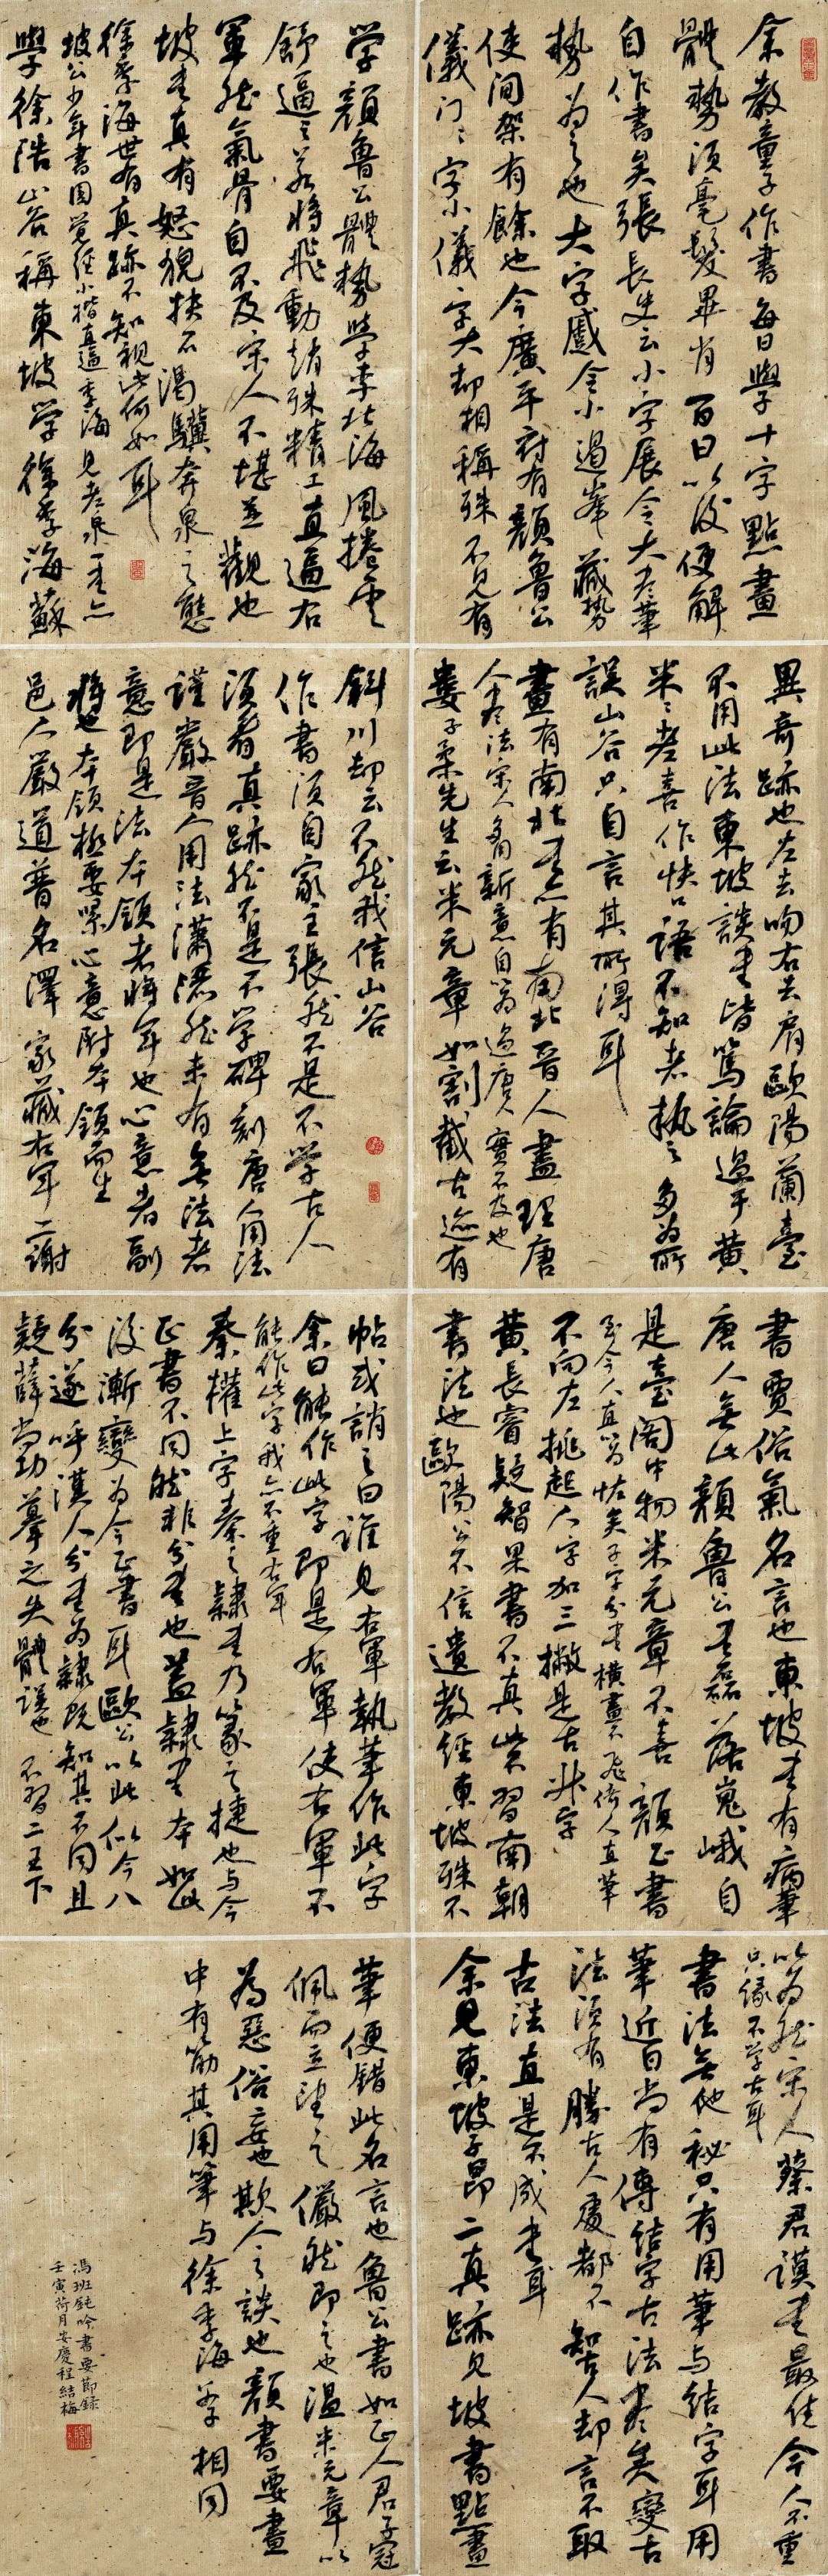 余教童子作書每日學十字點畫
體勢須毫髮畢肖百日以後便解
自作書矣張長史云小字展令大盡筆
勢為之也大字蹙令小遏峯藏勢
使间架有餘也今廣平府有顏魯公
儀门々字小儀々字大却相稱殊不見有
異奇跡也左去吻右去肩歐陽蘭臺
不用此法東坡談書皆篤論過乎黃
米々老喜作快口語不知者執之多為所
誤山谷只自言其所得耳
畫有南北書亦有南北晉人盡理唐
人盡法宋人多用新意自以為過唐人實不及也
婁子柔先生云米元章如割截古迹有
書賈俗氣名言也東坡書有病筆
唐人無此顏魯公書磊落嵬峨自
是臺阁中物米元章不喜顏正書
至今人直以為怪矣子字分書橫畫不飛仰人直筆
不向左挑起人字加三撇是古狀字
黃長睿疑智果書不真蓋習南朝
書法也歐陽公不信遺教經東坡殊不
以為然宋人蔡君謨書最佳今人不重
只緣不学古耳
書法無他秘只有用筆与结字耳用
筆近日尚有傳结字古法盡矣變古
法須有勝古人處都不知古人却言不取
古法直是不成書耳
余見東坡子昂二真跡見坡書點畫
学顏魯公體勢學李北海風捲雲
舒逼之若將飛動趙殊精工直逼右
軍然氣骨自不及宋人不堪並觀也
坡書真有怒猊抉石渴驥奔泉之態
徐季海世有真跡不知視此何如耳
坡公少年書圆觉经小楷直逼季海見老泉一書亦
學徐浩山谷稱東坡学徐季海蘇
斜川却云不然我信山谷
作書須自家主張然不是不学古人
須看真跡然不是不学碑刻唐人用法
謹嚴晉人用法瀟灑然未有無法者
意即是法本領者將軍也心意者副
將也本領極要緊心意附本領而生
邑人嚴道普名澤家藏右軍二謝
帖或誚之曰誰見右軍執筆作此字
余曰能作此字即是右軍使右軍不
能作此字我亦不重右軍
秦權上字秦之隸書乃篆之捷也与今
正書不同然非分書也蓋隸書本如此
後漸變为今正書耳歐公以此似今八
分遂呼漢人分書为隸既知其不同且
疑薛尚功摹之失體誤也不習二王下
筆便錯此名言也魯公書如正人君子冠
佩而立望之儼然即之也温米元章以
為惡俗妄也欺人之談也顏書要畫
中有筋其用筆与徐季海父子相同
馮班鈍吟書要節錄
壬寅荷月安慶程結梅